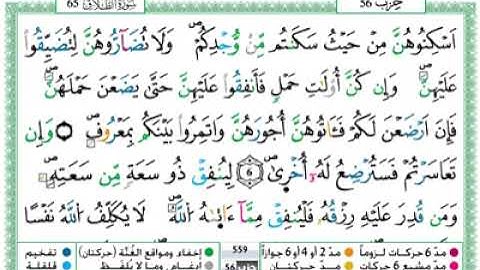 سُورَةُ الطَّلَاقِ 65
حِزب 56
أَسْكِنُوهُنَّ مِنْ حَيْثُ سَكَنتُم مِّن وُجْدِكُمْ وَلَا تُضَآرُّوهُنَّ لِتُضَيِّقُوا۟
عَلَيْهِنَّ ۚ وَإِن كُنَّ أُو۟لَـٰتِ حَمْلٍ فَأَنفِقُوا۟ عَلَيْهِنَّ حَتَّىٰ يَضَعْنَ حَمْلَهُنَّ ۚ
فَإِنْ أَرْضَعْنَ لَكُمْ فَـَٔاتُوهُنَّ أُجُورَهُنَّ ۖ وَأْتَمِرُوا۟ بَيْنَكُم بِمَعْرُوفٍ ۖ وَإِن
تَعَاسَرْتُمْ فَسَتُرْضِعُ لَهُۥٓ أُخْرَىٰ 6 لِيُنفِقْ ذُو سَعَةٍ مِّن سَعَتِهِۦ ۖ
وَمَن قُدِرَ عَلَيْهِ رِزْقُهُۥ فَلْيُنفِقْ مِمَّآ ءَاتَىٰهُ ٱللَّهُ ۚ لَا يُكَلِّفُ ٱللَّهُ نَفْسًا
مدّ 6 حركات لزوماً مدّ 2 أو 4 أو 6 جوازاً 559 إخفاء، ومواقع الغُنَّة (حركتان) تفخيم
مدّ حركتان إدغام، وما لا يُلفَظ قلقلة